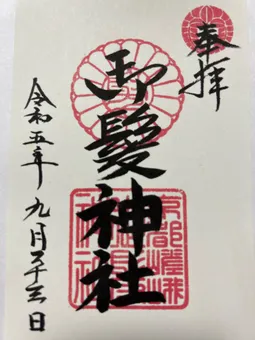 奉拝
御髪神社
令和五年九月二十 日